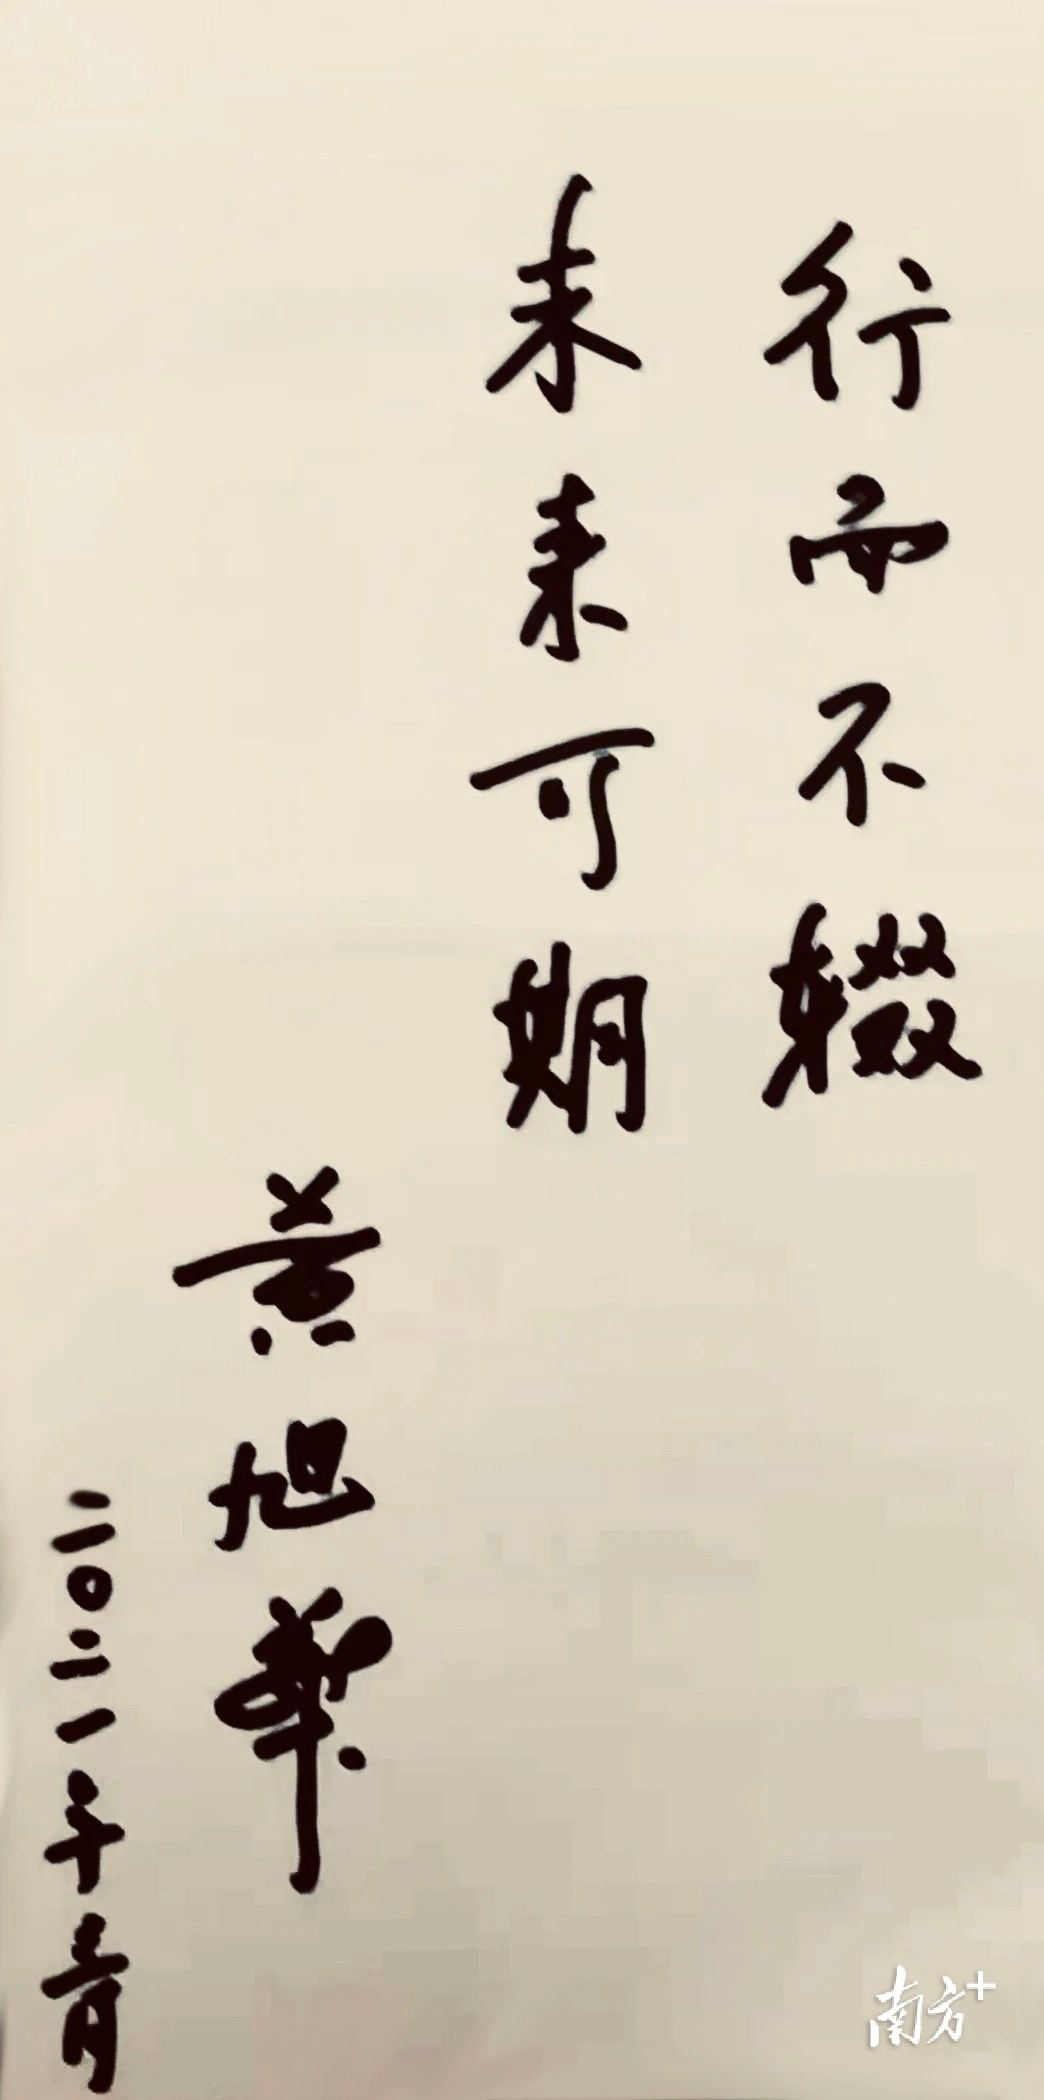 行而不辍
未来可期
黄旭华
二〇二一年六月
南方+